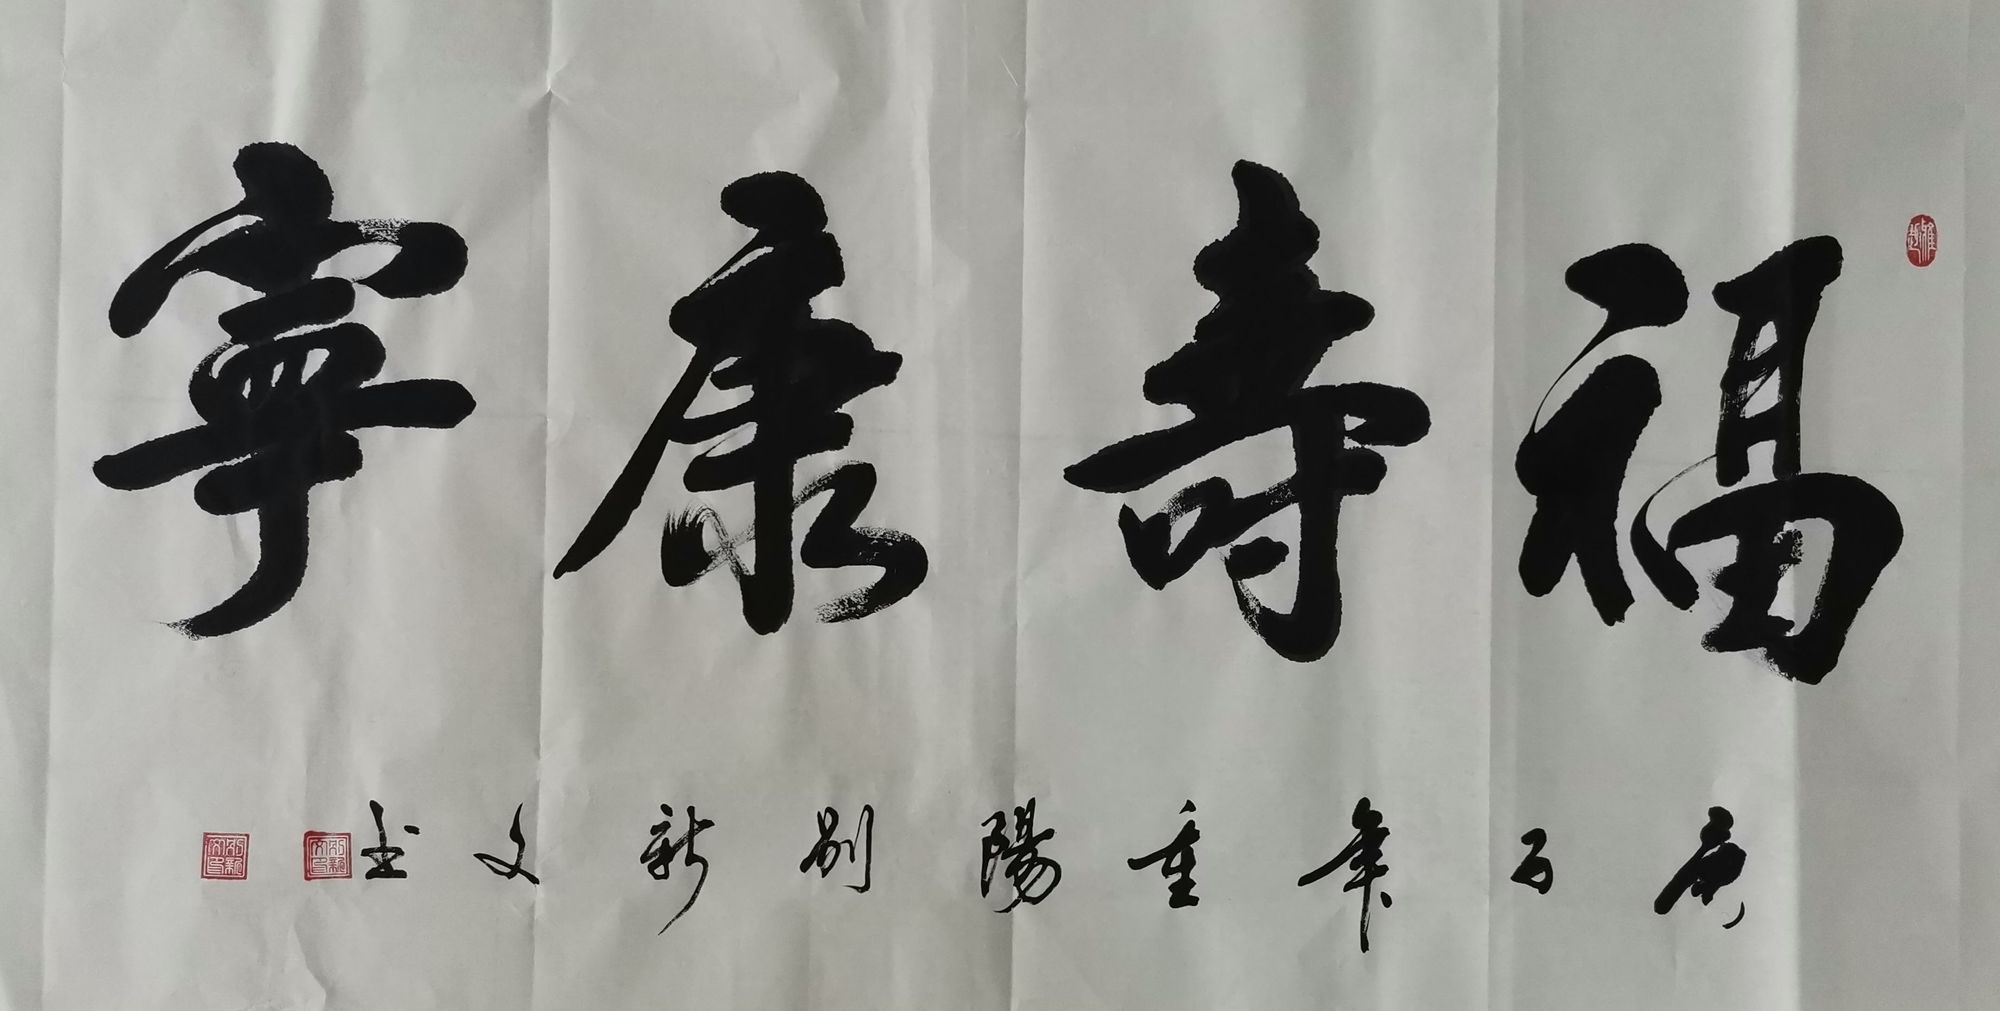 福壽康寧
庚子年重陽別新文書
雅趣